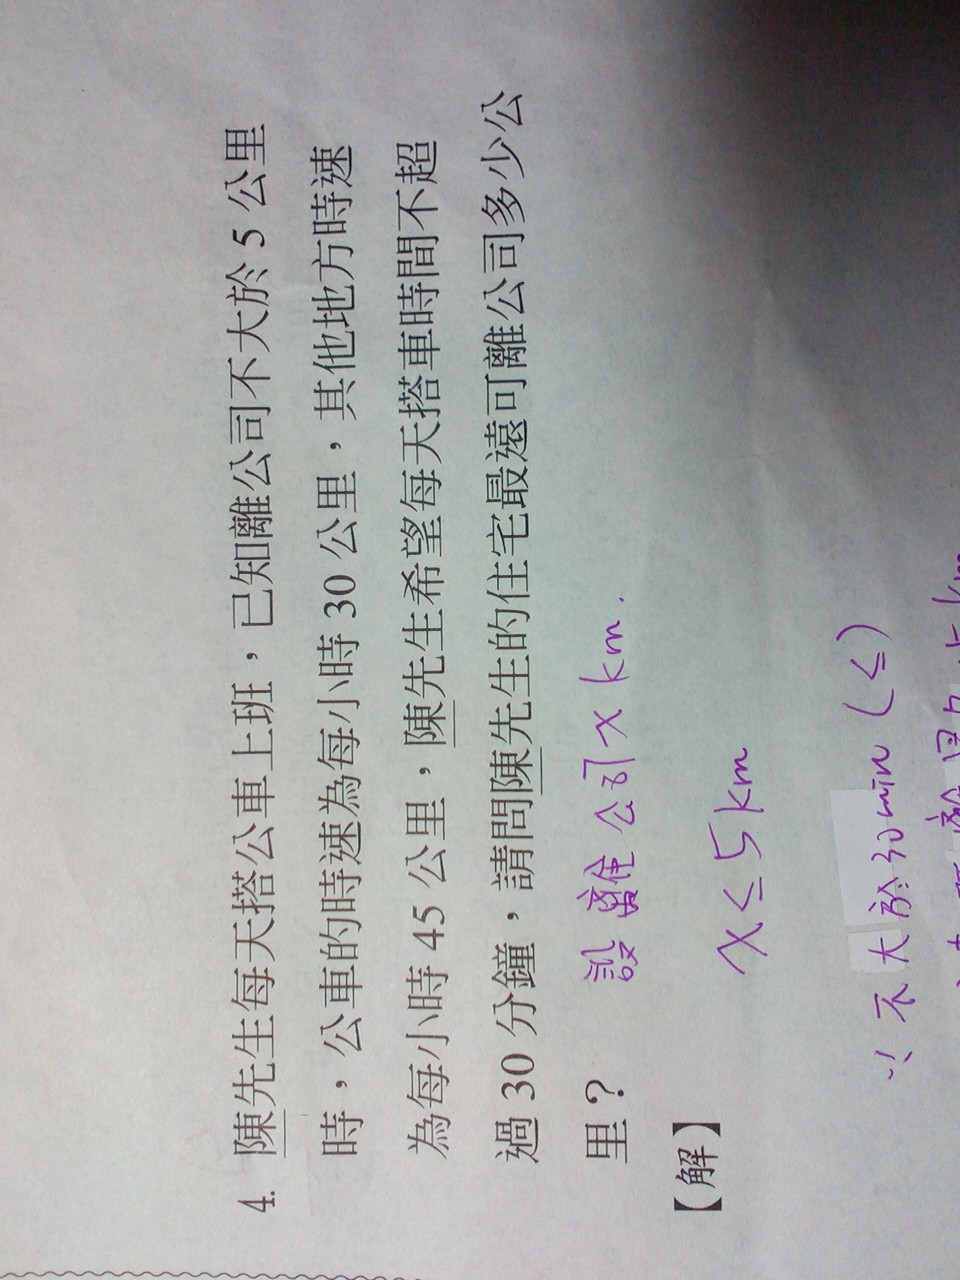 4. 陳先生每天搭公車上班，已知離公司不大於 5 公里
時，公車的時速為每小時 30 公里，其他地方時速
為每小時 45 公里，陳先生希望每天搭車時間不超
過 30 分鐘，請問陳先生的住宅最遠可離公司多少公
里？ 設離公司 x km.
【解】 x ≤ 5 km
∵ 不大於 30 min (≤)
km